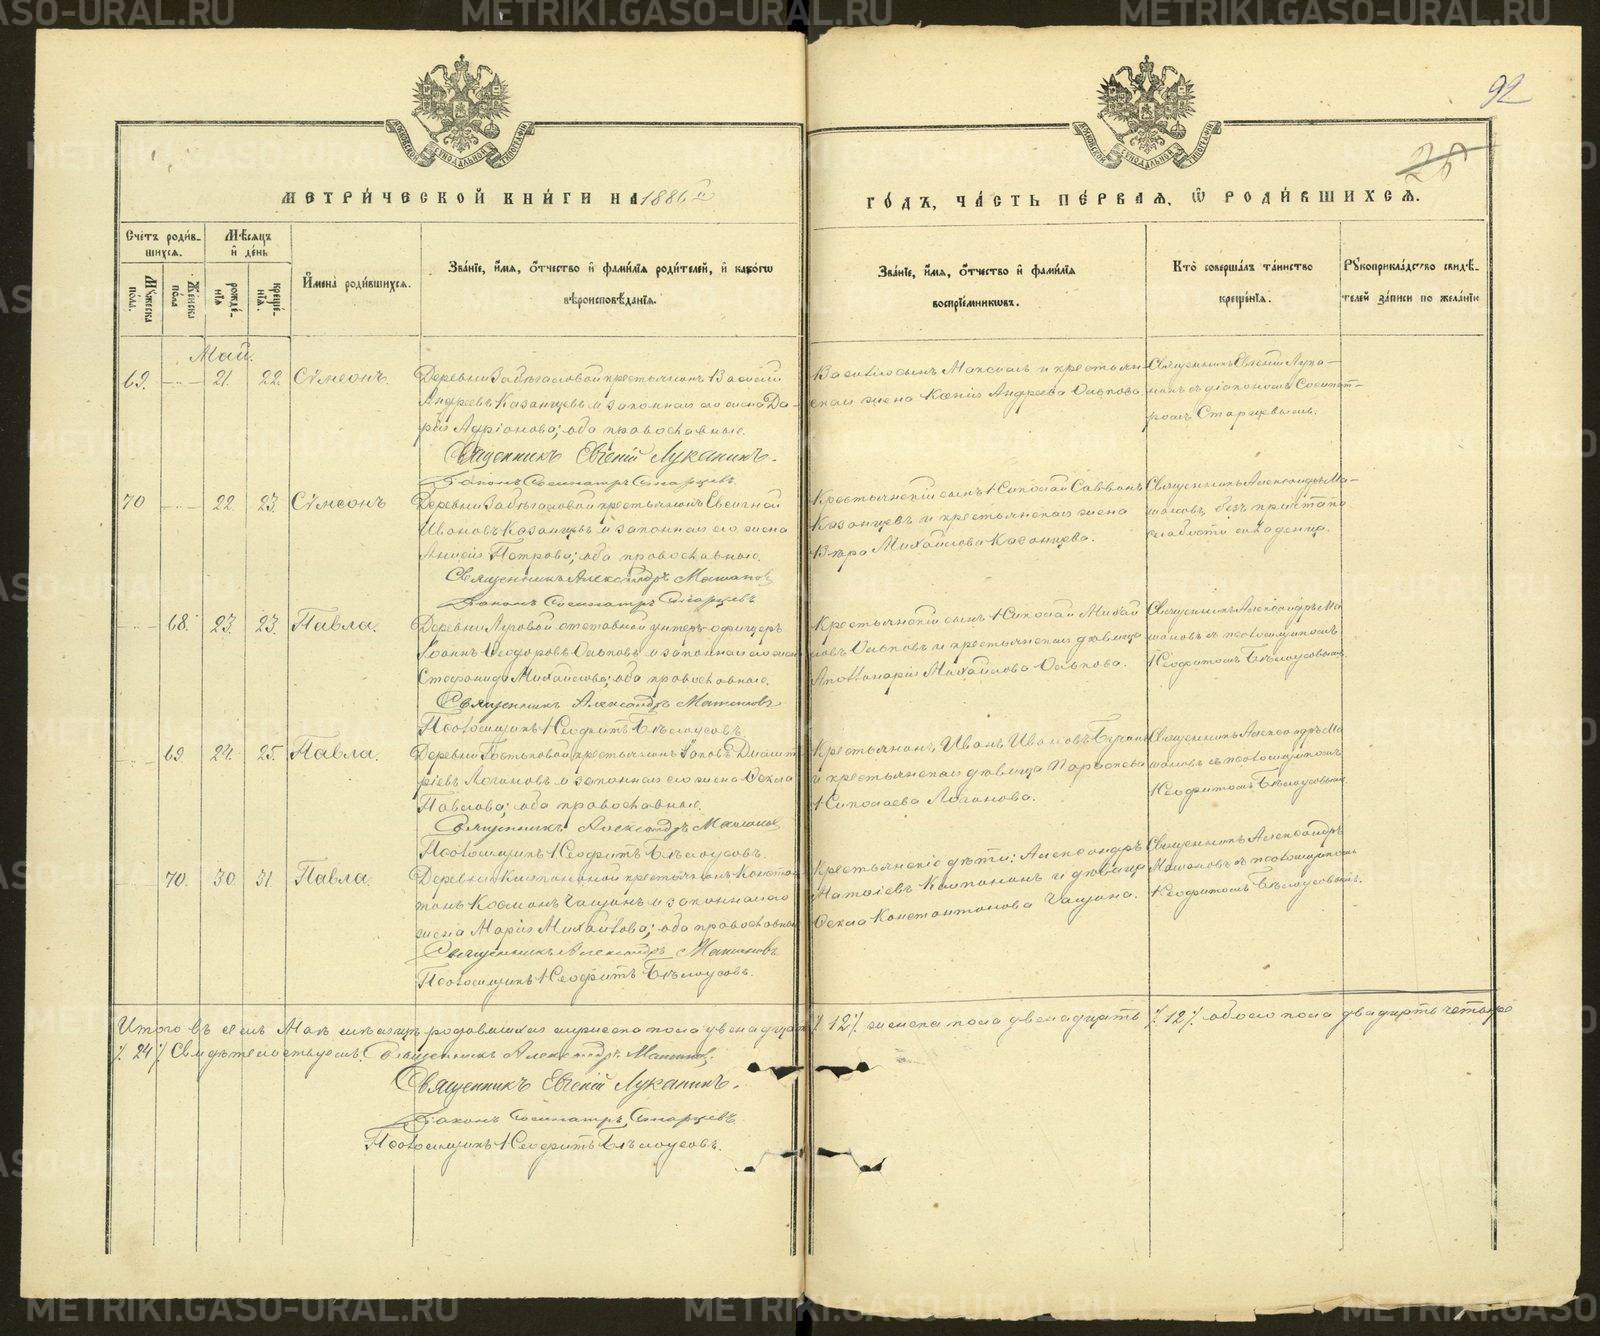 METRIKI.GASO-URAL.RU
92
25
МОСКОВСКОЙ СѴНОДАЛЬНОЙ ТИПОГРАФІИ
МОСКОВСКОЙ СѴНОДАЛЬНОЙ ТИПОГРАФІИ
МЕТРИ́ЧЕСКОЙ КНИ́ГИ НА 1886 й
ГО́ДЪ, ЧА́СТЬ ПЕ́РВАЯ, Ѡ РОДИ́ВШИХСЯ.
Сче́тъ роди́в-
шихся.
Мꙋ́жеска по́ла.
Же́нска по́ла
Мѣ́сяцъ и де́нь
рожде́-
нія
креще́-
нія.
И҆мена̀ роди́вшихся.
Зва́ніе, и҆́мя, ѻ҆́тчество и҆ фами́лія роди́телей, и҆ како́гѡ
вѣроисповѣ́данія.
Зва́ніе, и҆́мя, ѻ҆́тчество и҆ фами́лія
воспріе́мникѡвъ.
Кто̀ соверша́лъ та́инство
креще́нія.
Рꙋкоприкла́дство свидѣ́-
телей за́писи по жела́нію
Май.
69. 21. 22. Сѵмеонъ.
крестьянинъ Василій
Андреевъ Казанцевъ и законная его жена Да-
рія Адріанова; оба православные.
Священникъ Евгеній Луканинъ.
Діаконъ Сосипатръ Старцевъ.
Василіевъ сынъ Максимъ и крестьян-
ская жена Ксенія Андреева Осипова
Священникъ Евгеній Лука-
нинъ съ діакономъ Сосипат-
ромъ Старцевымъ.
70 22. 23. Сѵмеонъ
крестьянинъ Евсигней
Ивановъ Казанцевъ и законная его жена
Анисія Петрова; оба православные.
Священникъ Александръ Машановъ
Діаконъ Сосипатръ Старцевъ
Крестьянскій сынъ Николай Саввинъ
Казанцевъ и крестьянская жена
Вѣра Михайлова Казанцева.
Священникъ Александръ Ма-
шановъ, безъ причта по
слабости младенца.
68. 23. 23. Павла.
Деревни Луговой отставной унтеръ-офицеръ
Іоаннъ Ѳеодоровъ Осиповъ и законная его жена
Стефанида Михайлова; оба православные.
Священникъ Александръ Машановъ
Псаломщикъ Неофитъ Бѣлоусовъ
Крестьянскій сынъ Николай Михай
ловъ Осиповъ и крестьянская дѣвица
Аполлинарія Михайлова Осипова.
Священникъ Александръ Ма
шановъ съ псаломщикомъ
Неофитомъ Бѣлоусовымъ.
69. 24. 25. Павла.
крестьянинъ Іаковъ Димит
ріевъ Логиновъ и законная его жена Ѳекла
Павлова; оба православные.
Священникъ Александръ Машановъ
Псаломщикъ Неофитъ Бѣлоусовъ.
Крестьянинъ Иванъ Ивановъ
и крестьянская дѣвица Параскева
Николаева Логинова.
Священникъ Александръ Ма
шановъ съ псаломщикомъ
Неофитомъ Бѣлоусовымъ.
70. 30. 31. Павла.
крестьянинъ Констан
тинъ Косминъ и законная его
жена Марія Михайлова; оба православные
Священникъ Александръ Машановъ
Псаломщикъ Неофитъ Бѣлоусовъ.
Крестьянскіе дѣти: Александръ
и дѣвица
Ѳекла Константинова
Священникъ Александръ
Машановъ съ псаломщикомъ
Неофитомъ Бѣлоусовымъ.
Итого въ семъ Маѣ мѣсяцѣ родившихся мужеска пола двѣнадцать
/. 12 /. женска пола двѣнадцать /. 12 /. обоего пола двадцать четыре
/. 24 /. Свидѣтельствуемъ: Священникъ Александръ Машановъ.
Священникъ Евгеній Луканинъ.
Діаконъ Сосипатръ Старцевъ.
Псаломщикъ Неофитъ Бѣлоусовъ.